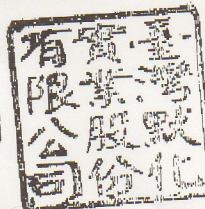 臺灣
實業股份
有限公司